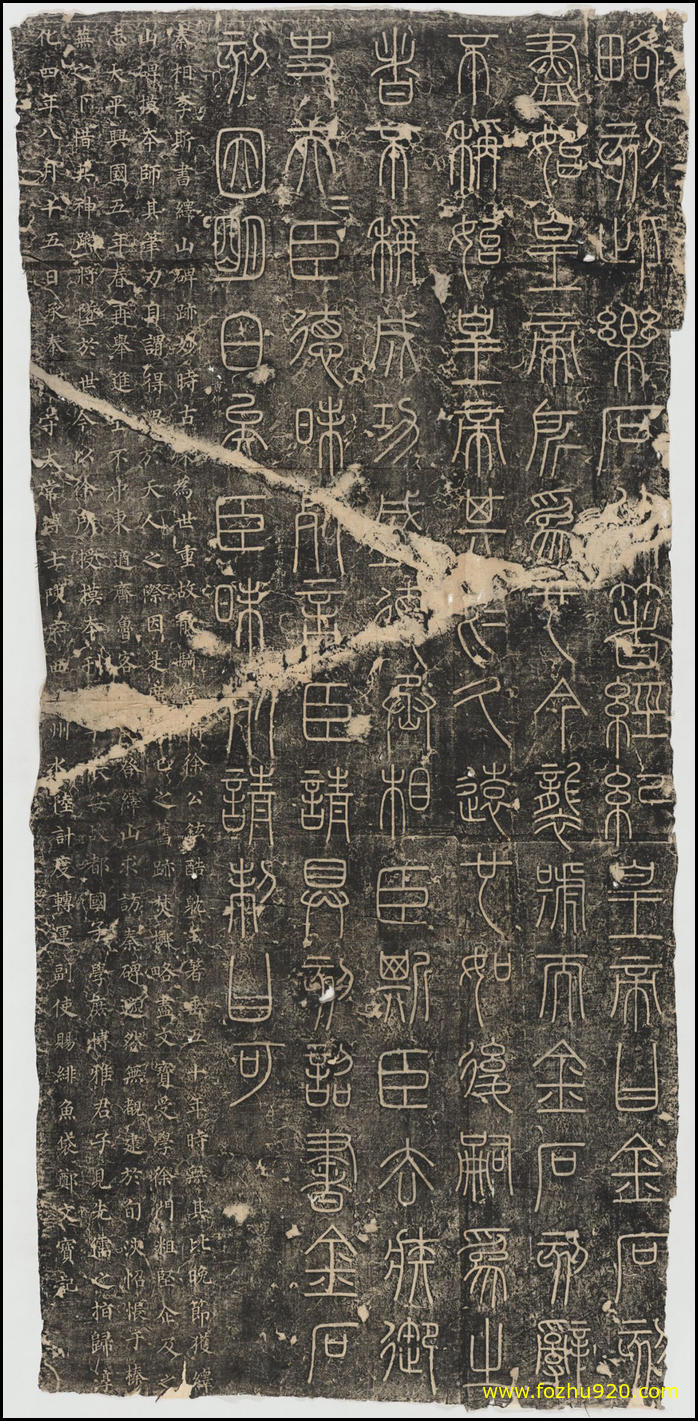 略刻此樂石著經紀皇帝曰金石刻
盡始皇帝所為也今襲號而金石刻辭
不稱始皇帝其於久遠也如後嗣為之
者不稱成功盛德丞相臣斯臣去疾御
史夫臣德昧死言臣請具刻詔書金石
刻因明白矣臣昧死請制曰可
秦相李斯書繹山碑跡妙時古殊為世重故徐公鉉酷耽玉箸垂五十年時無其比晚節獲繹
山碑摸本師其筆力自謂得思於天人之際因是廣己之舊跡焚擲略盡文寶受學徐門粗堅企及之
志太平興國五年春再舉進士不中東適齊魯客登繹山求訪秦碑邈然無覩逮於旬浹怊悵于榛
蕪之下惜其神蹤將墜於世今以徐所授摸本刊長安故都國子學庶博雅君子見先儒之指歸淳
化四年八月十五日承奉守太常博士陝府西州水陸計度轉運副使賜緋魚袋鄭文寶記
www.fozhu920.com